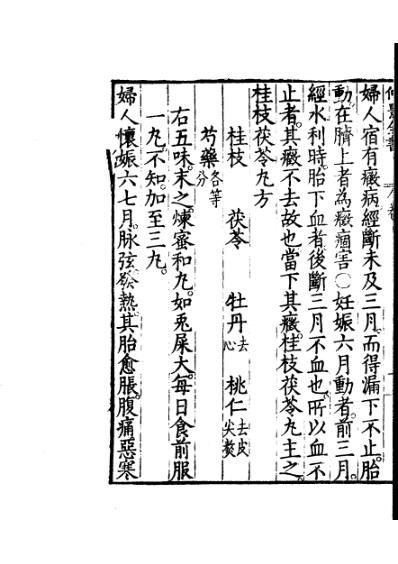 婦人宿有癥病經斷未及三月。而得漏下不止胎
動在臍上者為癥痼害○妊娠六月動者。前三月。
經水利時。胎下血者後斷三月不血也。所以血不
止者。其癥不去故也當下其癥。桂枝茯苓丸主之。
桂枝茯苓丸方
桂枝 茯苓 牡丹去心 桃仁去皮尖熬
芍藥各等分
右五味。末之煉蜜和丸。如兎屎大。每日食前服
一丸。不知。加至三丸。
婦人懷娠六七月。脉弦發熱。其胎愈脹。腹痛惡寒